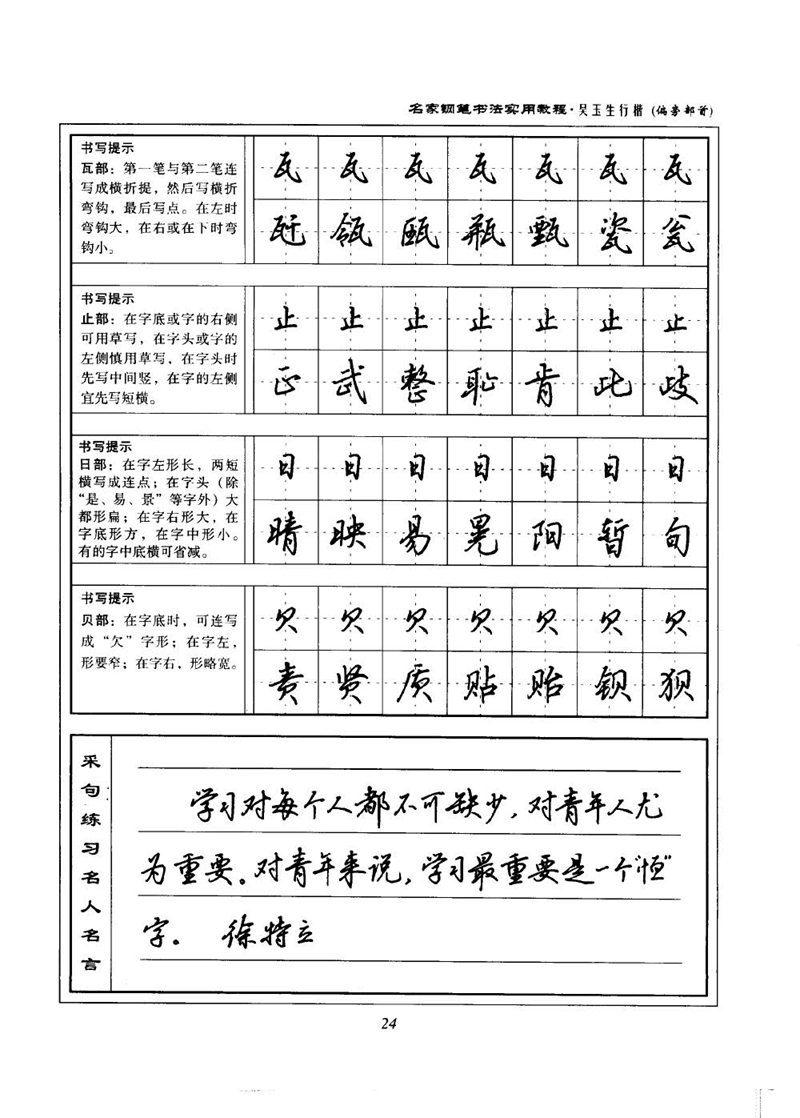 名家钢笔书法实用教程·吴玉生行楷（偏旁部首）
书写提示
瓦部：第一笔与第二笔连
写成横折提，然后写横折
弯钩，最后写点。在左时
弯钩大，在右或在下时弯
钩小。
瓦 瓦 瓦 瓦 瓦 瓦 瓦
瓩 瓴 瓯 瓶 甄 瓷 瓮
书写提示
止部：在字底或字的右侧
可用草写，在字头或字的
左侧慎用草写，在字头时
先写中间竖，在字的左侧
宜先写短横。
止 止 止 止 止 止 止
正 武 整 耻 肯 此 歧
书写提示
日部：在字左形长，两短
横写成连点；在字头（除
“是、易、景”等字外）大
都形扁；在字右形大，在
字底形方，在字中形小。
有的字中底横可省减。
日 日 日 日 日 日 日
晴 映 易 晃 阳 暂 旬
书写提示
贝部：在字底时，可连写
成“欠”字形；在字左，
形要窄；在字右，形略宽。
贝 贝 贝 贝 贝 贝 贝
责 贤 质 贴 贻 钡 狈
采句练习名人名言
学习对每个人都不可缺少，对青年人尤
为重要。对青年来说，学习最重要是一个“恒”
字。 徐特立
24